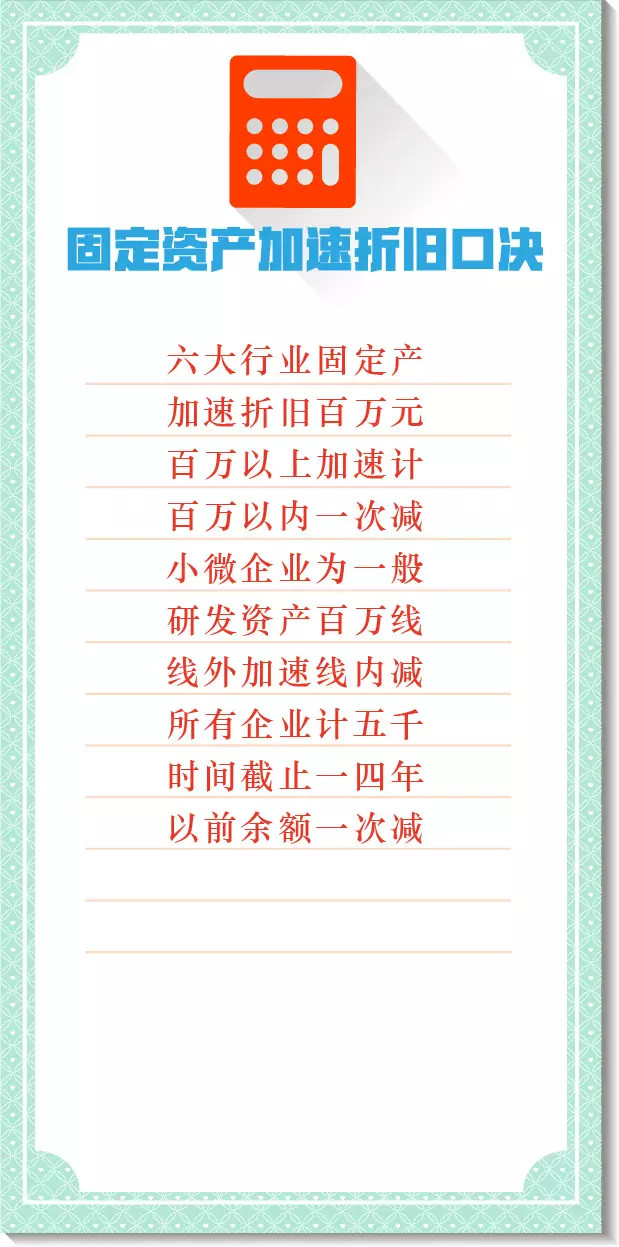 固定资产加速折旧口决
六大行业固定产
加速折旧百万元
百万以上加速计
百万以内一次减
小微企业为一般
研发资产百万线
线外加速线内减
所有企业计五千
时间截止一四年
以前余额一次减